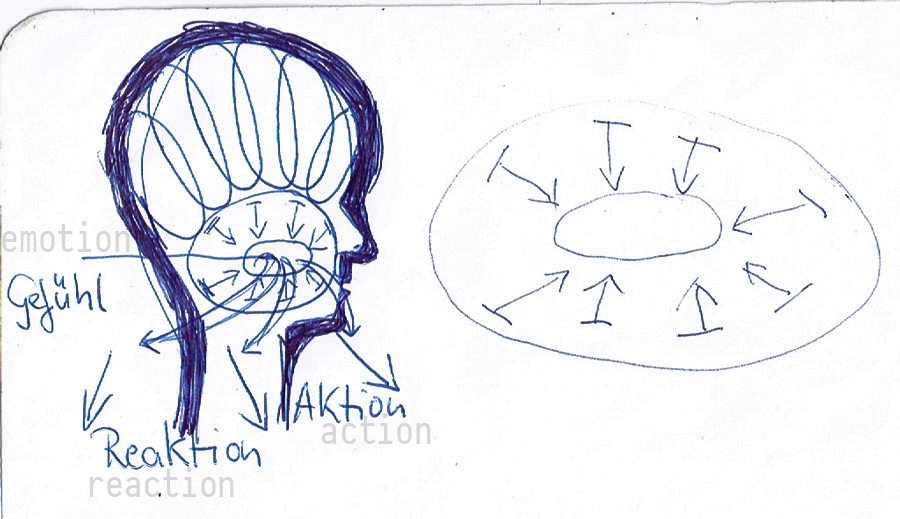 emotion
Gefühl
Aktion
action
Reaktion
reaction